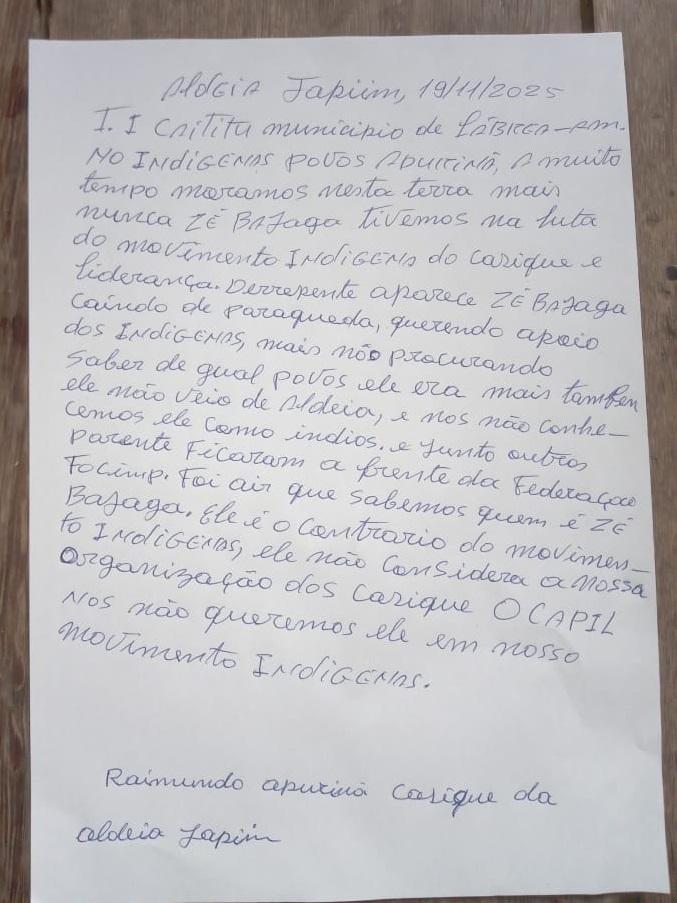 Aldeia Japiim, 19/11/2025
T. I Caititu municipio de LÁBREA-AM.
NO INDIGENAS POVOS APURINÃ, A muito
tempo moramos nesta terra mais
nunca ZÉ BAJAGA Tivemos na luta
do movimento INDIGENA do casique e
liderança. Derrepente aparece ZÉ BAJAGA
caindo de paraqueda, querendo apoio
dos INDIGENAS, mais não procurando
saber de qual povos ele era mais tambem
ele não veio de Aldeia, e nos não conhe-
cemos ele como indios. e junto outros
parente Ficaram a frente da Federação
Focimp. Foi air que sabemos quem é ZÉ
BAJAGA. Ele é o contrario do movimen-
to INDIGENAS, ele não considera a nossa
organização dos casique OCAPIL
Nos não queremos ele em nosso
movimento INDIGENAS.
Raimundo apurinã casique da
aldeia Japiim